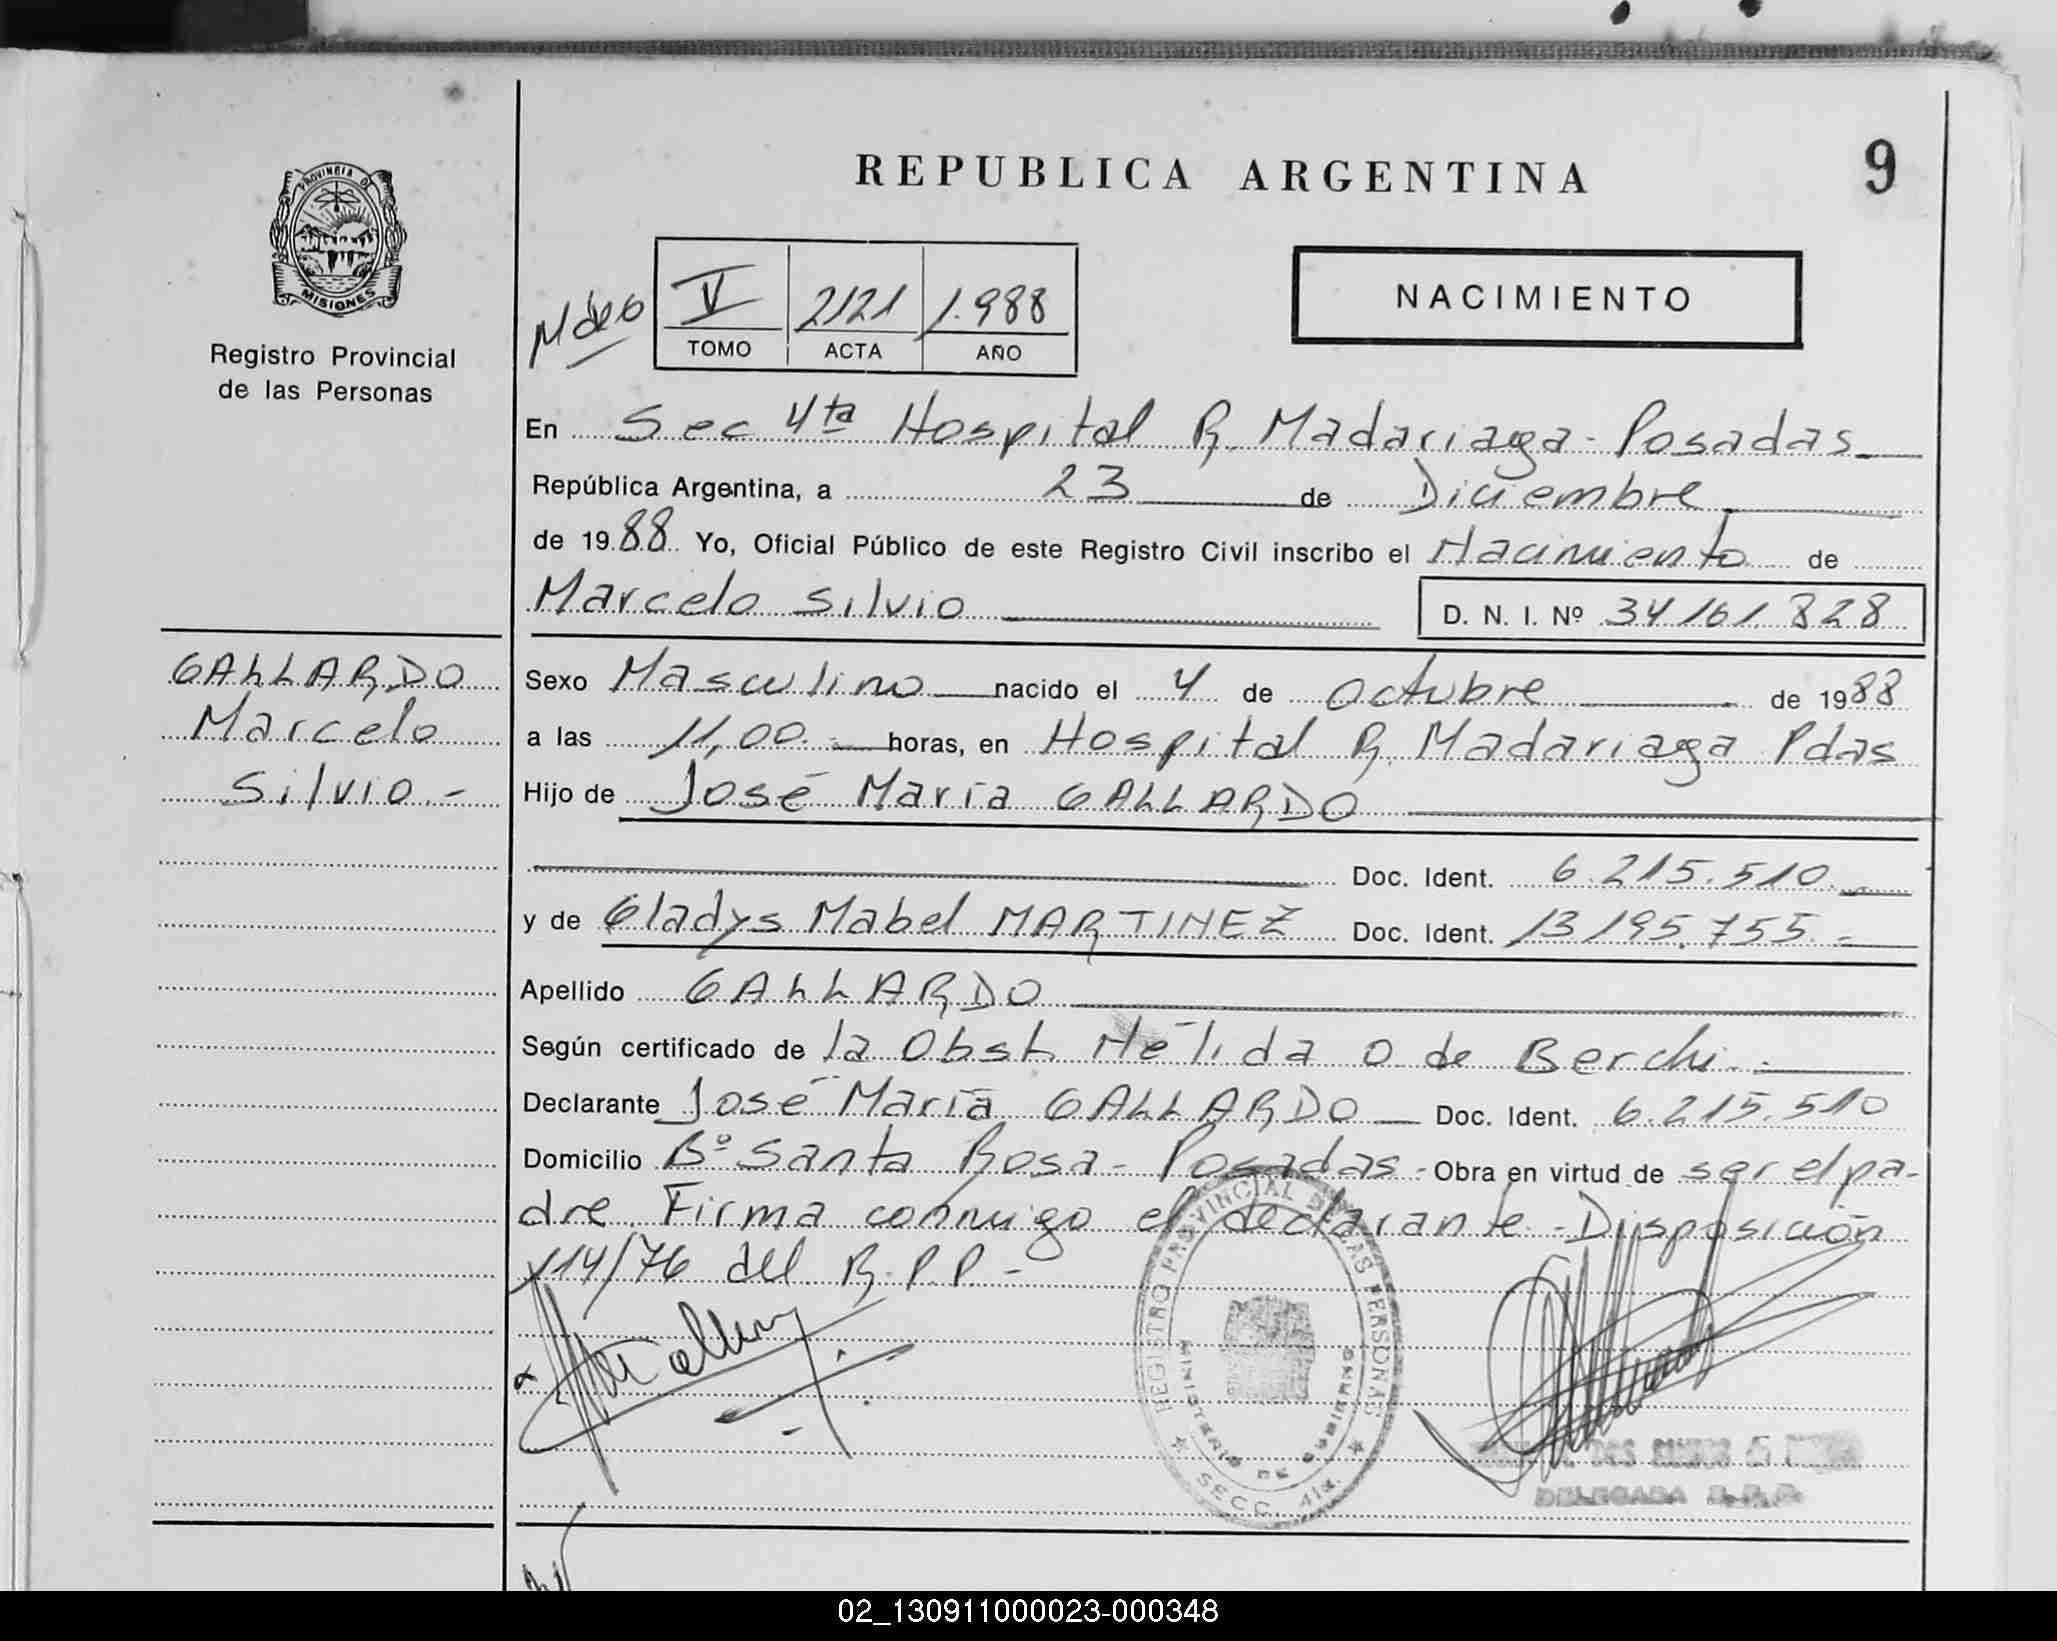 REPUBLICA ARGENTINA
9
PROVINCIA D
MISIONES
Registro Provincial
de las Personas
V 2121 1.988
TOMO ACTA AÑO
NACIMIENTO
En Sec 4ta Hospital R. Madariaga - Posadas
República Argentina, a 23 de Diciembre
de 1988 Yo, Oficial Público de este Registro Civil inscribo el Nacimiento de
Marcelo Silvio
D. N. I. Nº 34161.828
GALLARDO
Marcelo
Silvio.-
Sexo Masculino nacido el 4 de octubre de 1988
a las 11,00.- horas, en Hospital R. Madariaga Pdas
Hijo de José María GALLARDO
Doc. Ident. 6.215.510.-
y de Gladys Mabel MARTINEZ Doc. Ident. 13195.755.-
Apellido GALLARDO
Según certificado de la Obst. Nélida O. de Berchi.-
Declarante José María GALLARDO Doc. Ident. 6.215.510
Domicilio Bº Santa Rosa - Posadas - Obra en virtud de ser el pa-
dre. Firma conmigo el declarante - Disposición
114/76 del R.P.P. -
REGISTRO PROVINCIAL DE LAS PERSONAS
MINISTERIO DE GOBIERNO
SECC. 4ta.
DELEGADA R.P.P.
02_130911000023-000348